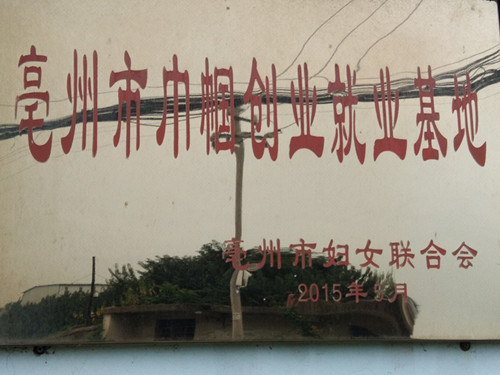 亳州市巾帼创业就业基地
亳州市妇女联合会
2015年9月